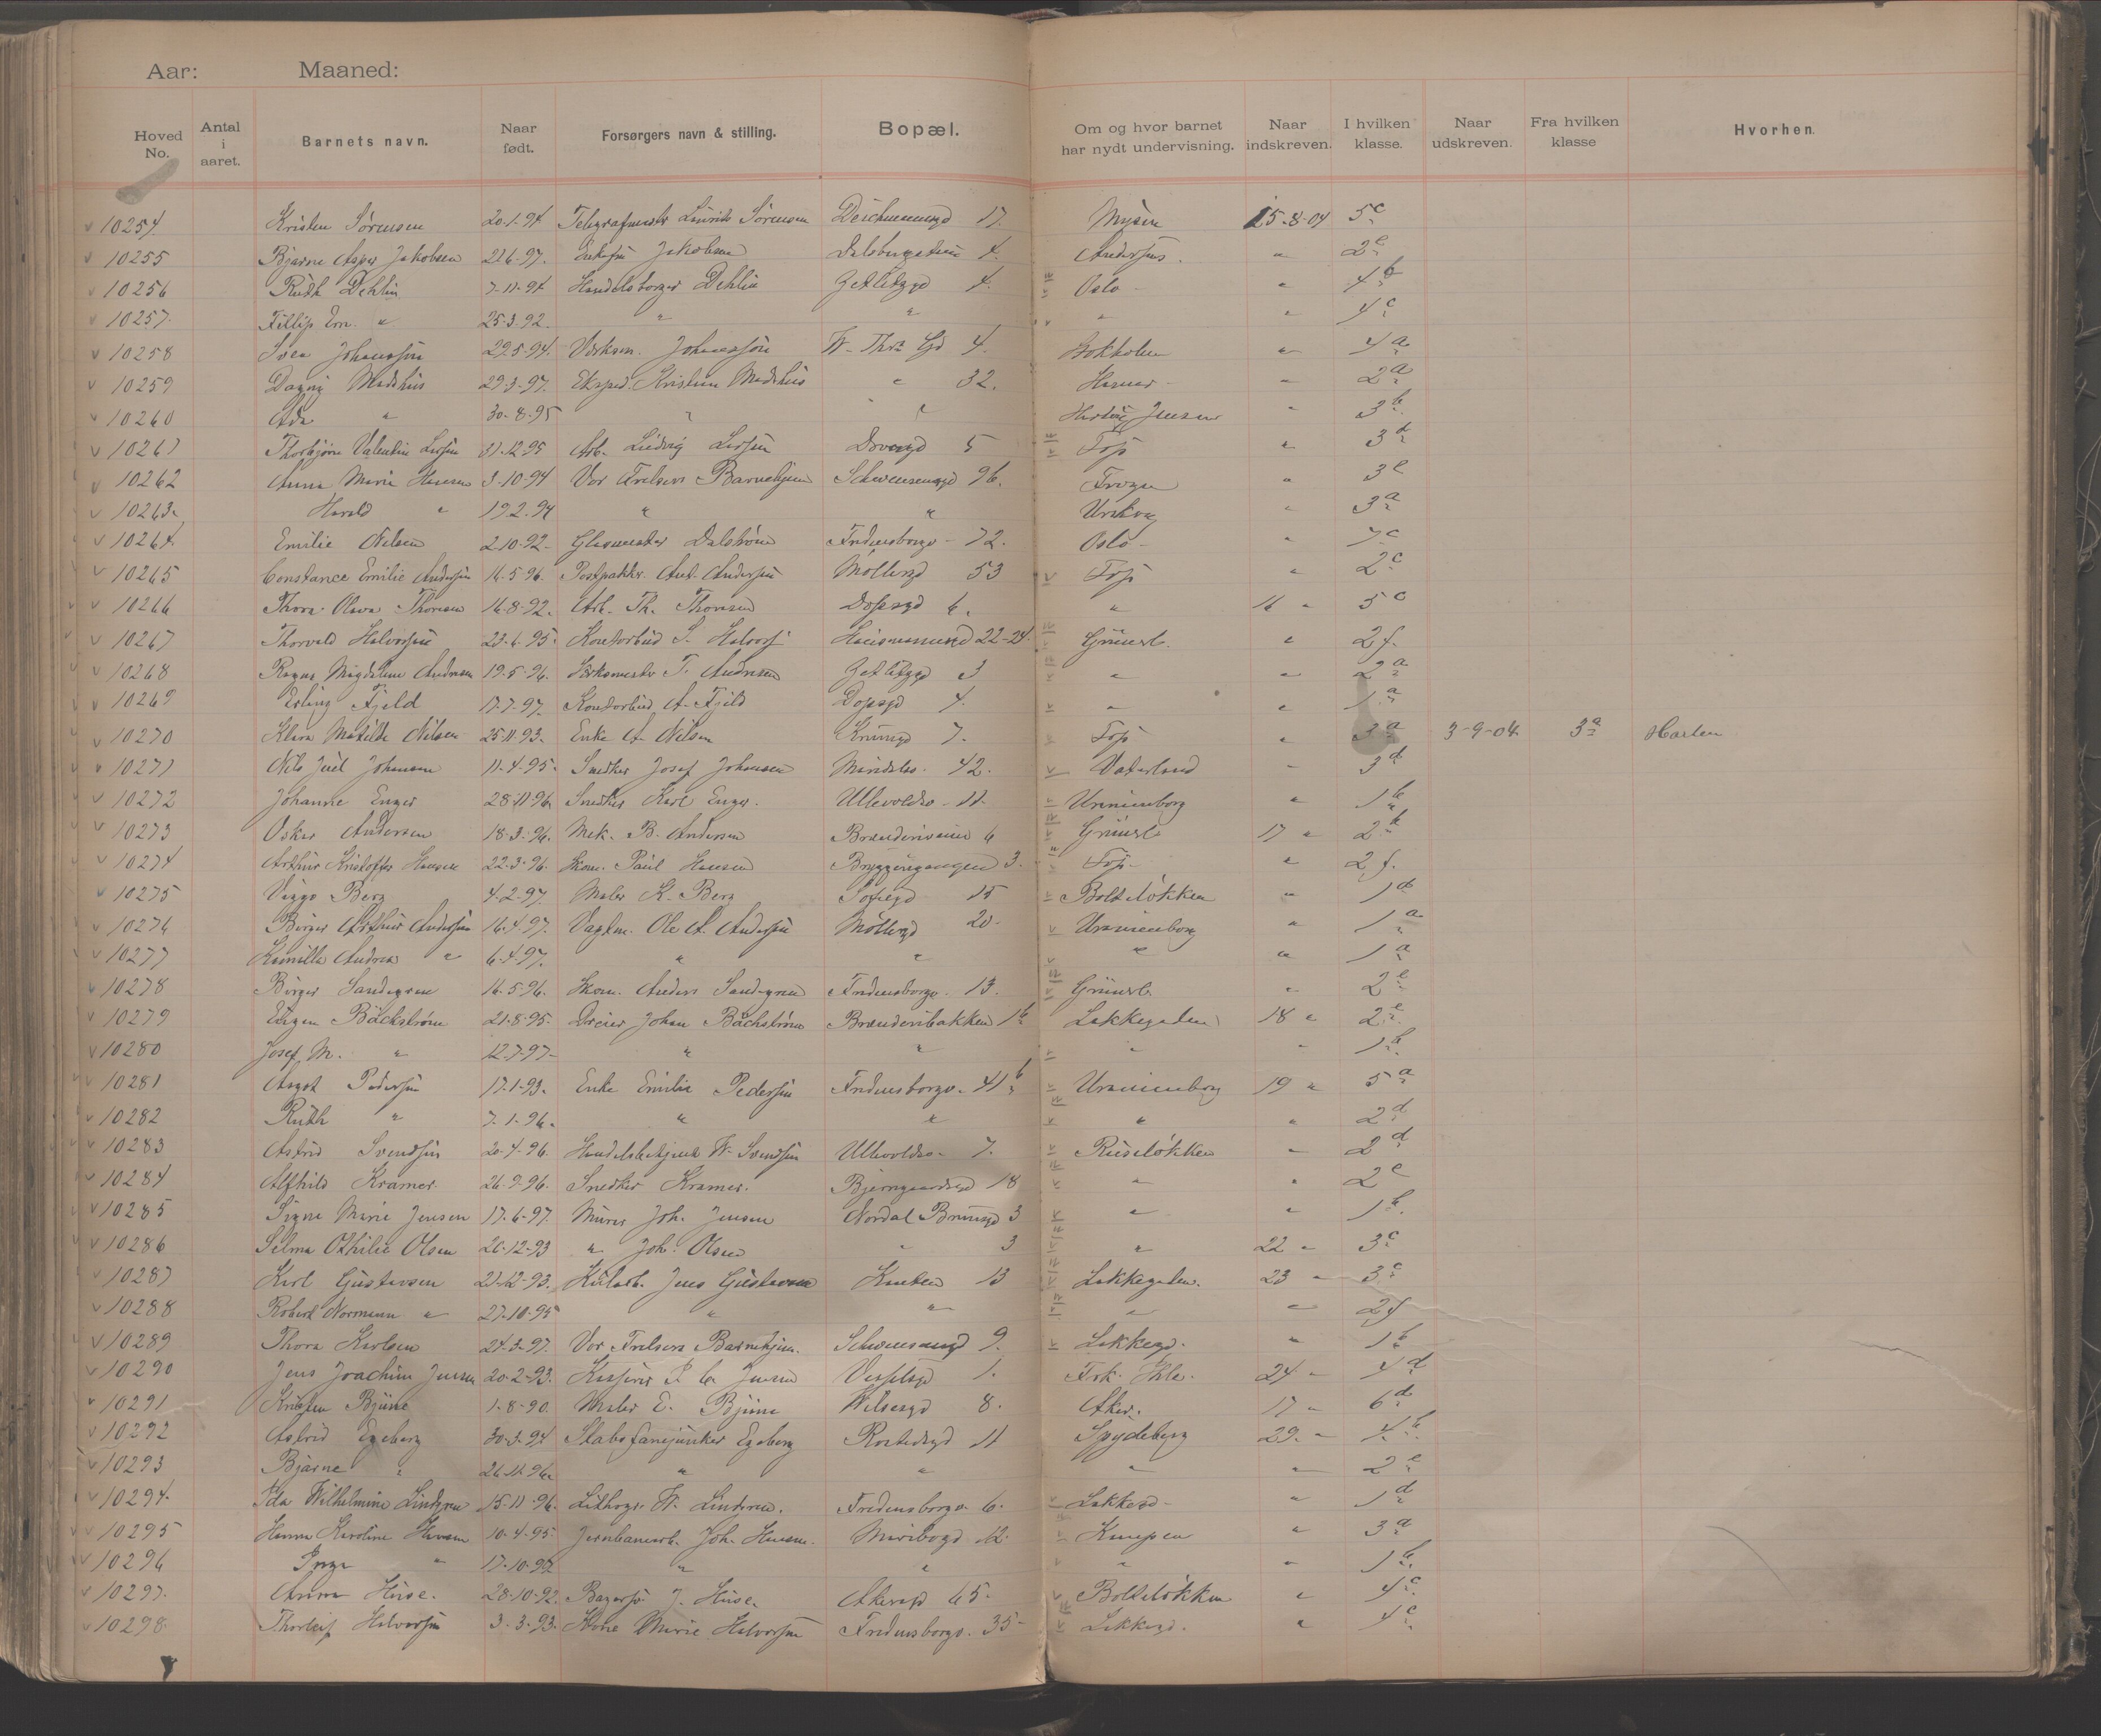 Aar: Maaned:
Hoved No. Antal i aaret. Barnets navn. Naar født. Forsørgers navn & stilling. Bopæl. Om og hvor barnet har nydt undervisning. Naar indskreven. I hvilken klasse. Naar udskreven. Fra hvilken klasse Hvorhen.
10254 Kristen Sørensen 20-1-94 Sørensen 17. Mysen 15-8-04 5c
10255 Bjarne Asper Jakobsen 21.6-97. Jakobsen 4. " 2e
10256 Ruth Dehlin 7-11-94 Handelsborger Dehlin Zetlitzgd 4. Oslo " 4b
10257. Fillip Em. " 25-3-92. " " " " 4c
10258 Svea Johansson 29.5-94. Johansson W. Thr. Gd 4. " 4a
10259 Dagny Madshus 29-3-97. Eksped. Kristian Madshus " 32. Hamar " 2a
10260 Ada " 30-8-95 " " Jensen " 3b
10261 Thorbjørn Valentin Larsen 31-12-95 Arb. Ludvig Larsen 5 Foss " 3d
10262 Anna Marie Hansen 3-10-94 Vor Frelsers Barnehjem Schwensensgd 96. Frogner " 3e
10263. Harald " 19.2.94 " " " 3a
10264. Emilie Nilsen 2-10-92. Glasmester Dalstrøm Fredensborgv. 72. Oslo " 7c
10265 Constance Emilie Andersen 16-5-96. Postpakkm. Ant. Andersen Møllergd 53 Foss " 2c
10266 Thora Olava Thoresen 16-8-92. Arb. Th. Thoresen Dopsgd 6. " 16 " 5c
10267 Thorvald Halvorsen 23-6-95. Kontorbud S. Halvors. 22-24. Grünerl. " 2f.
10268 Ragna Magdalene Andresen 19-5-96. T. Andresen Zetlitzgd 3 " " 2a
10269 Erling Fjeld 17-7-97. Kontorbud A. Fjeld Dopsgd 4. " " 1a
10270 Klara Matilde Nilsen 25-11-93. Enke A. Nilsen 7. Foss " 3a 3-9-04 3a Haslen
10271 Nils Juel Johansen 11-4-95. Snedker Josef Johansen 42. Vaterland " 3d
10272 Johanne Enger 28-11-96. Snedker Karl Enger. Ullevoldsv. 11. Uranienborg " 1b
10273 Oskar Andersen 18-3-96. Mek. B. Andersen Brænderiveien 6 Grünerl. 17 " 2b
10274 Arthur Kristoffer Hansen 22-3-96. Skom. Paul Hansen Bryggerigangen 3. Foss " 2f.
10275 Viggo Berg 4-2-97. Maler K. Berg Sofiegd 15 Bolteløkken " 1d
10276 Birger Arthur Andersen 16-4-97. Vagtm. Ole A. Andersen Møllergd 20. Uranienborg " 1a
10277 Kamilla Andrea " 6-4-97. " " " " 1a
10278 Birger Sandegren 16-5-96. Skom. Anders Sandegren Fredensborgv. 13. Grünerl. " 2e
10279 Eugen Bäckstrøm 21-8-95. Dreier Johan Bäckstrøm Brænderibakken 1b Lakkegaden 18 " 2e
10280 Josef M. " 12-7-97. " " " " 1b
10281 Asgot Pedersen 17-1-93. Enke Emilie Pedersen Fredensborgv. 41b Uranienborg 19 " 5a
10282 Ruth " 7-1-96. " " " " 2d
10283 Astrid Svendsen 20-4-96. Handelsbetjent W. Svendsen Ullevoldsv. 7. Ruseløkken " 2d
10284 Alfhild Kramer. 26-9-96. Snedker Kramer. Bjerregaardsgd 18 " " 2c
10285 Signe Marie Jensen 17-6-97. Murer Joh. Jensen Nordal Brunsgd 3 " " 1b.
10286 Selma Othilie Olsen 26-12-93 " Joh. Olsen " 3 " 22 " 3c
10287 Karl Gustavsen 21-12-93. Jens Gustavsen 13 Lakkegaden. 23 " 3c
10288 Robert Normann " 27-10-95 " " " " 2f
10289 Thora Karlsen 24-3-97. Vor Frelsers Barnehjem. Schwensensgd 9. Lakkegd. " 1b
10290 Jens Joachim Jensen 20-2-93. Kasserer Jensen Vesselsgd 1. 24 " 4d
10291 Kristen Bjune 1-8-90. Maler E. Bjune Wilsesgd 8. Aker. 17 " 6d
10292 Astrid Egeberg 30-3-94 Stabsfanejunker Egeberg Rostedsgd 11 Spydeberg 29. " 4b.
10293 Bjarne " 26-11-96. " " " " 2e
10294. Ida Wilhelmine Lindgren 15-11-96. Lithogr. W. Lindgren. Fredensborgv. 6. Lakkegd. " 1d
10295 Hanna Karoline Hansen 10-4-95 Jernbanearb. Joh. Hansen. Maribogd 12. Kampen " 3a
10296 Inga " 17-10-97 " " " " 1b.
10297. Anna Huse. 28-10-92. J. Huse. Akersgd 65. Bolteløkken " 4c
10298. Thorleif Halvorsen 3-3-93. Kone Marie Halvorsen Fredensborgv. 35 Lakkegd. " 4c